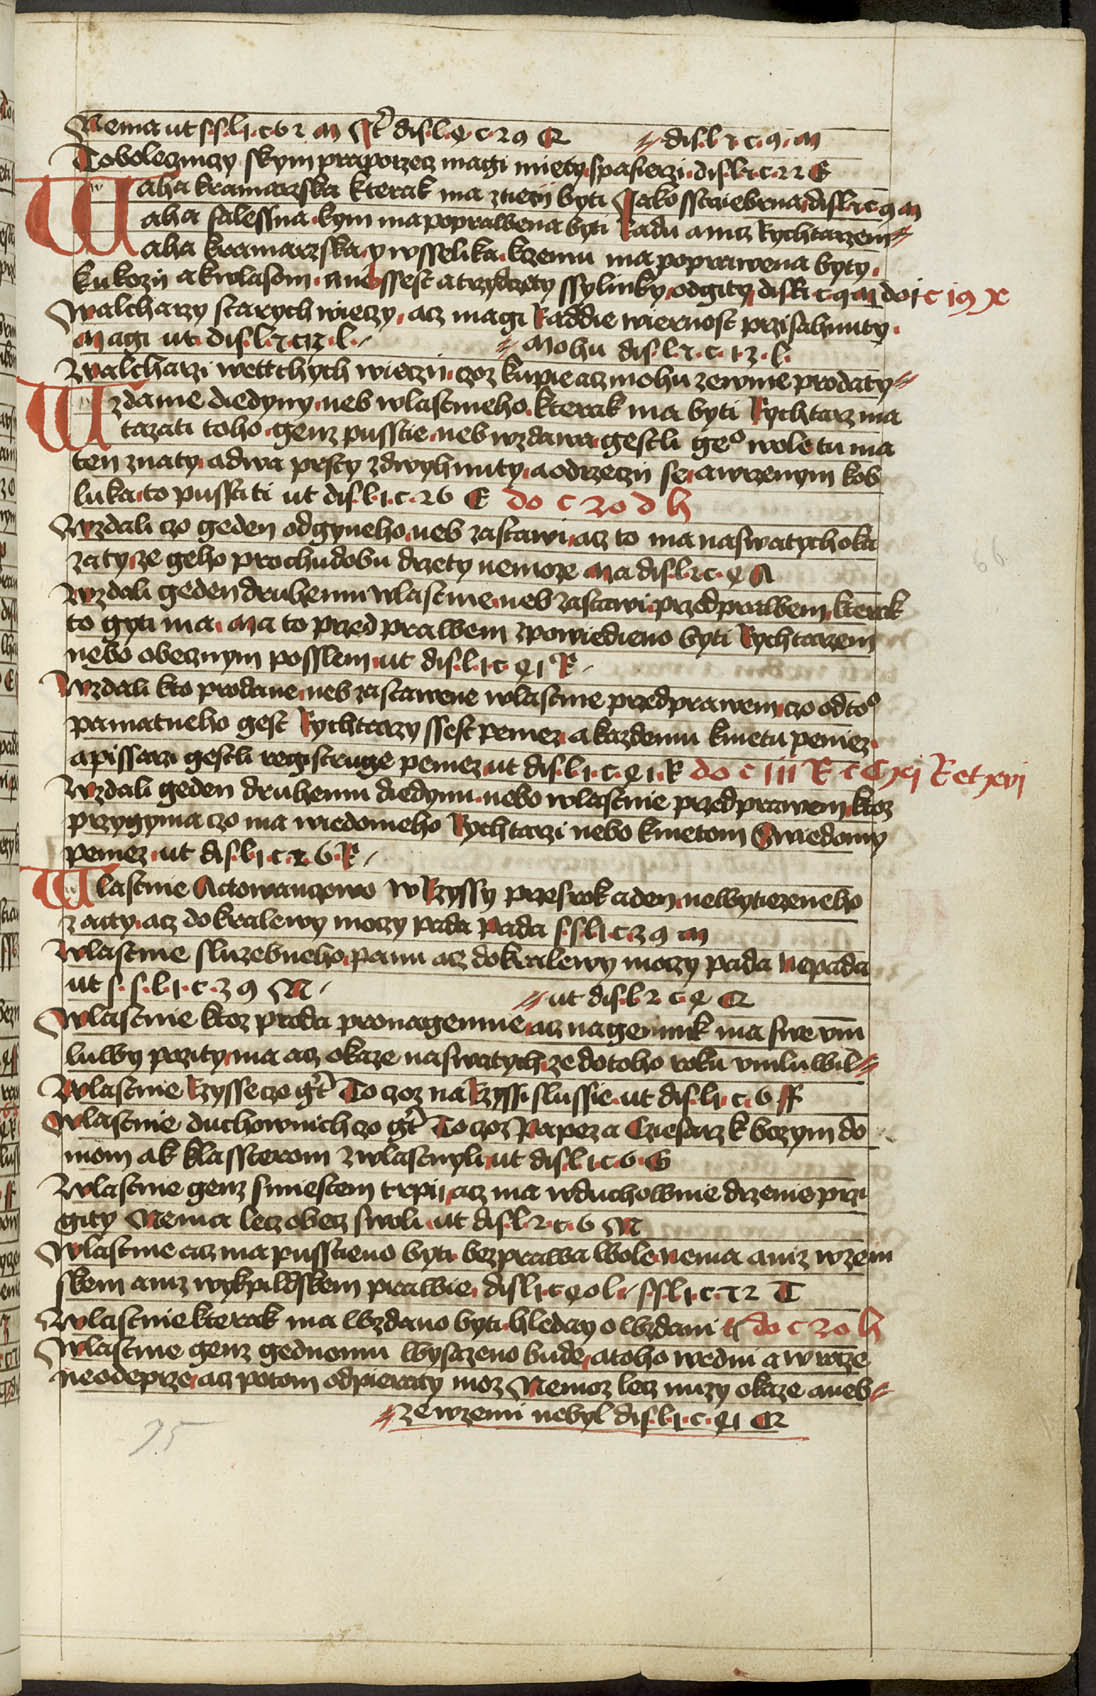 Nema ut s.s.l.1.c.62 M It dis.l.4.c.29 Q dis.l.2.c.9.M
Tobolecznyczy skym praporzecz magi miety spasierzi dis.l.1.c.22 E
Waha kramarzska kterak ma zniety byti Jako strziebrna dis.l.1.c.9 M
aha falessna kym ma poprawena byti Radu a niz Rychtarzem
aha kramarzska y wsselika kczemu ma poprawena byty
kukozy a kwlasom a niz ssest a trzydczety ssylinky odgity dis.l.1.c.9 M do i c 19 x
Walcharzy starych wieczy acz magi Raddie wiernost przisahnuty
Magi ut dis.l.2.c.12.l. Mohu dis.l.2.c.12.l.
Walcharzi wettchych wieczi czoz kupie acz mohu zewnie prodaty
Wzdanie diedyny neb wlastneho kterak ma byti Rychtarz ma
tazati toho genz pusstie neb wzdawa gestli geo wole tu ma
ten znaty a dwa prsty zdwyhnuty a odrzeczy se a wrzenym kob
luka to pussti ti ut dis.l.1.c.26 E do c 20 d h
Wzdali czo geden odgyneho neb zastawi acz to ma naswatych oka
zaty ze geho prochudobu drzety nemoze Ma dis.l.2.c.4 A
Wzdali geden druhemu wlastnie neb zastawi przed prawem kterak
to gyti ma Ma to przed prawem zpowiedieno byti Rychtarzem
nebo obecznym posslem ut dis.l.1.c.41 R
Wzdali kto prodane neb zastawene wlastnie przed prawem czo odtoo
pamatneho gest Rychtarzy ssest peniez a kazdemu kmetu peniez
a pissarzi gestli registruge peniez ut dis.l.1.c.41.R do c iii R c C xci R et xvj
Wzdali geden druhemu diedynu nebo wlastnie przed prawem ktoz
przygyma czo ma wiedomeho Rychtarzi nebo kmetom Swiedomy
peniez ut dis.l.1.c.26.R
Wlastnie Actowanczowo w Rzyssy przes rok a den newytiezeneho
zacty acz do kralewy moczy pada Pada s.s.l.1.c.39 M
Wlastnie sluzebneho panu acz do kralewy moczy pada Nepada
ut s.s.l.1.c.39 M ut dis.l.2.c.4 Q
Wlastnie ktoz proda pronagemnie acz nagemnik ma swe vm
luwy pozity ma acz okaze naswatych ze do toho roku vmluwil
Wlastnie Rzysse czo gt To czoz na Rzyssi slussie ut dis.l.1.c.6 ff
Wlastnie duchownich czo gt To czoz Papez a Cziesarz k bozym do
mom a k klassterom zwlastnyli ut dis.l.1.c.6.G
Wlastnie genz s miestem trpij acz ma wduchownie drzenie przi
gity Nema lecz obecz swoli ut dis.l.2.c.6 M
Wlastnie acz ma pusstieno byti bez prawa wole nema a niz wzem
skem a niz wykpildskem prawie dis.l.1.c.40 l. s.s.l.1.c.72 T
Wlastnie kterak ma wzdano byti hleday o wzdani ti do c 20 h
Wlastnie genz gednomu wysazeno bude a toho wedni a w rocze
neodeprze acz potom odpieraty moz Nemoz lecz nuzy okaze aneb
ze wzemi nebyl dis.l.1.c.41 Q
66
75